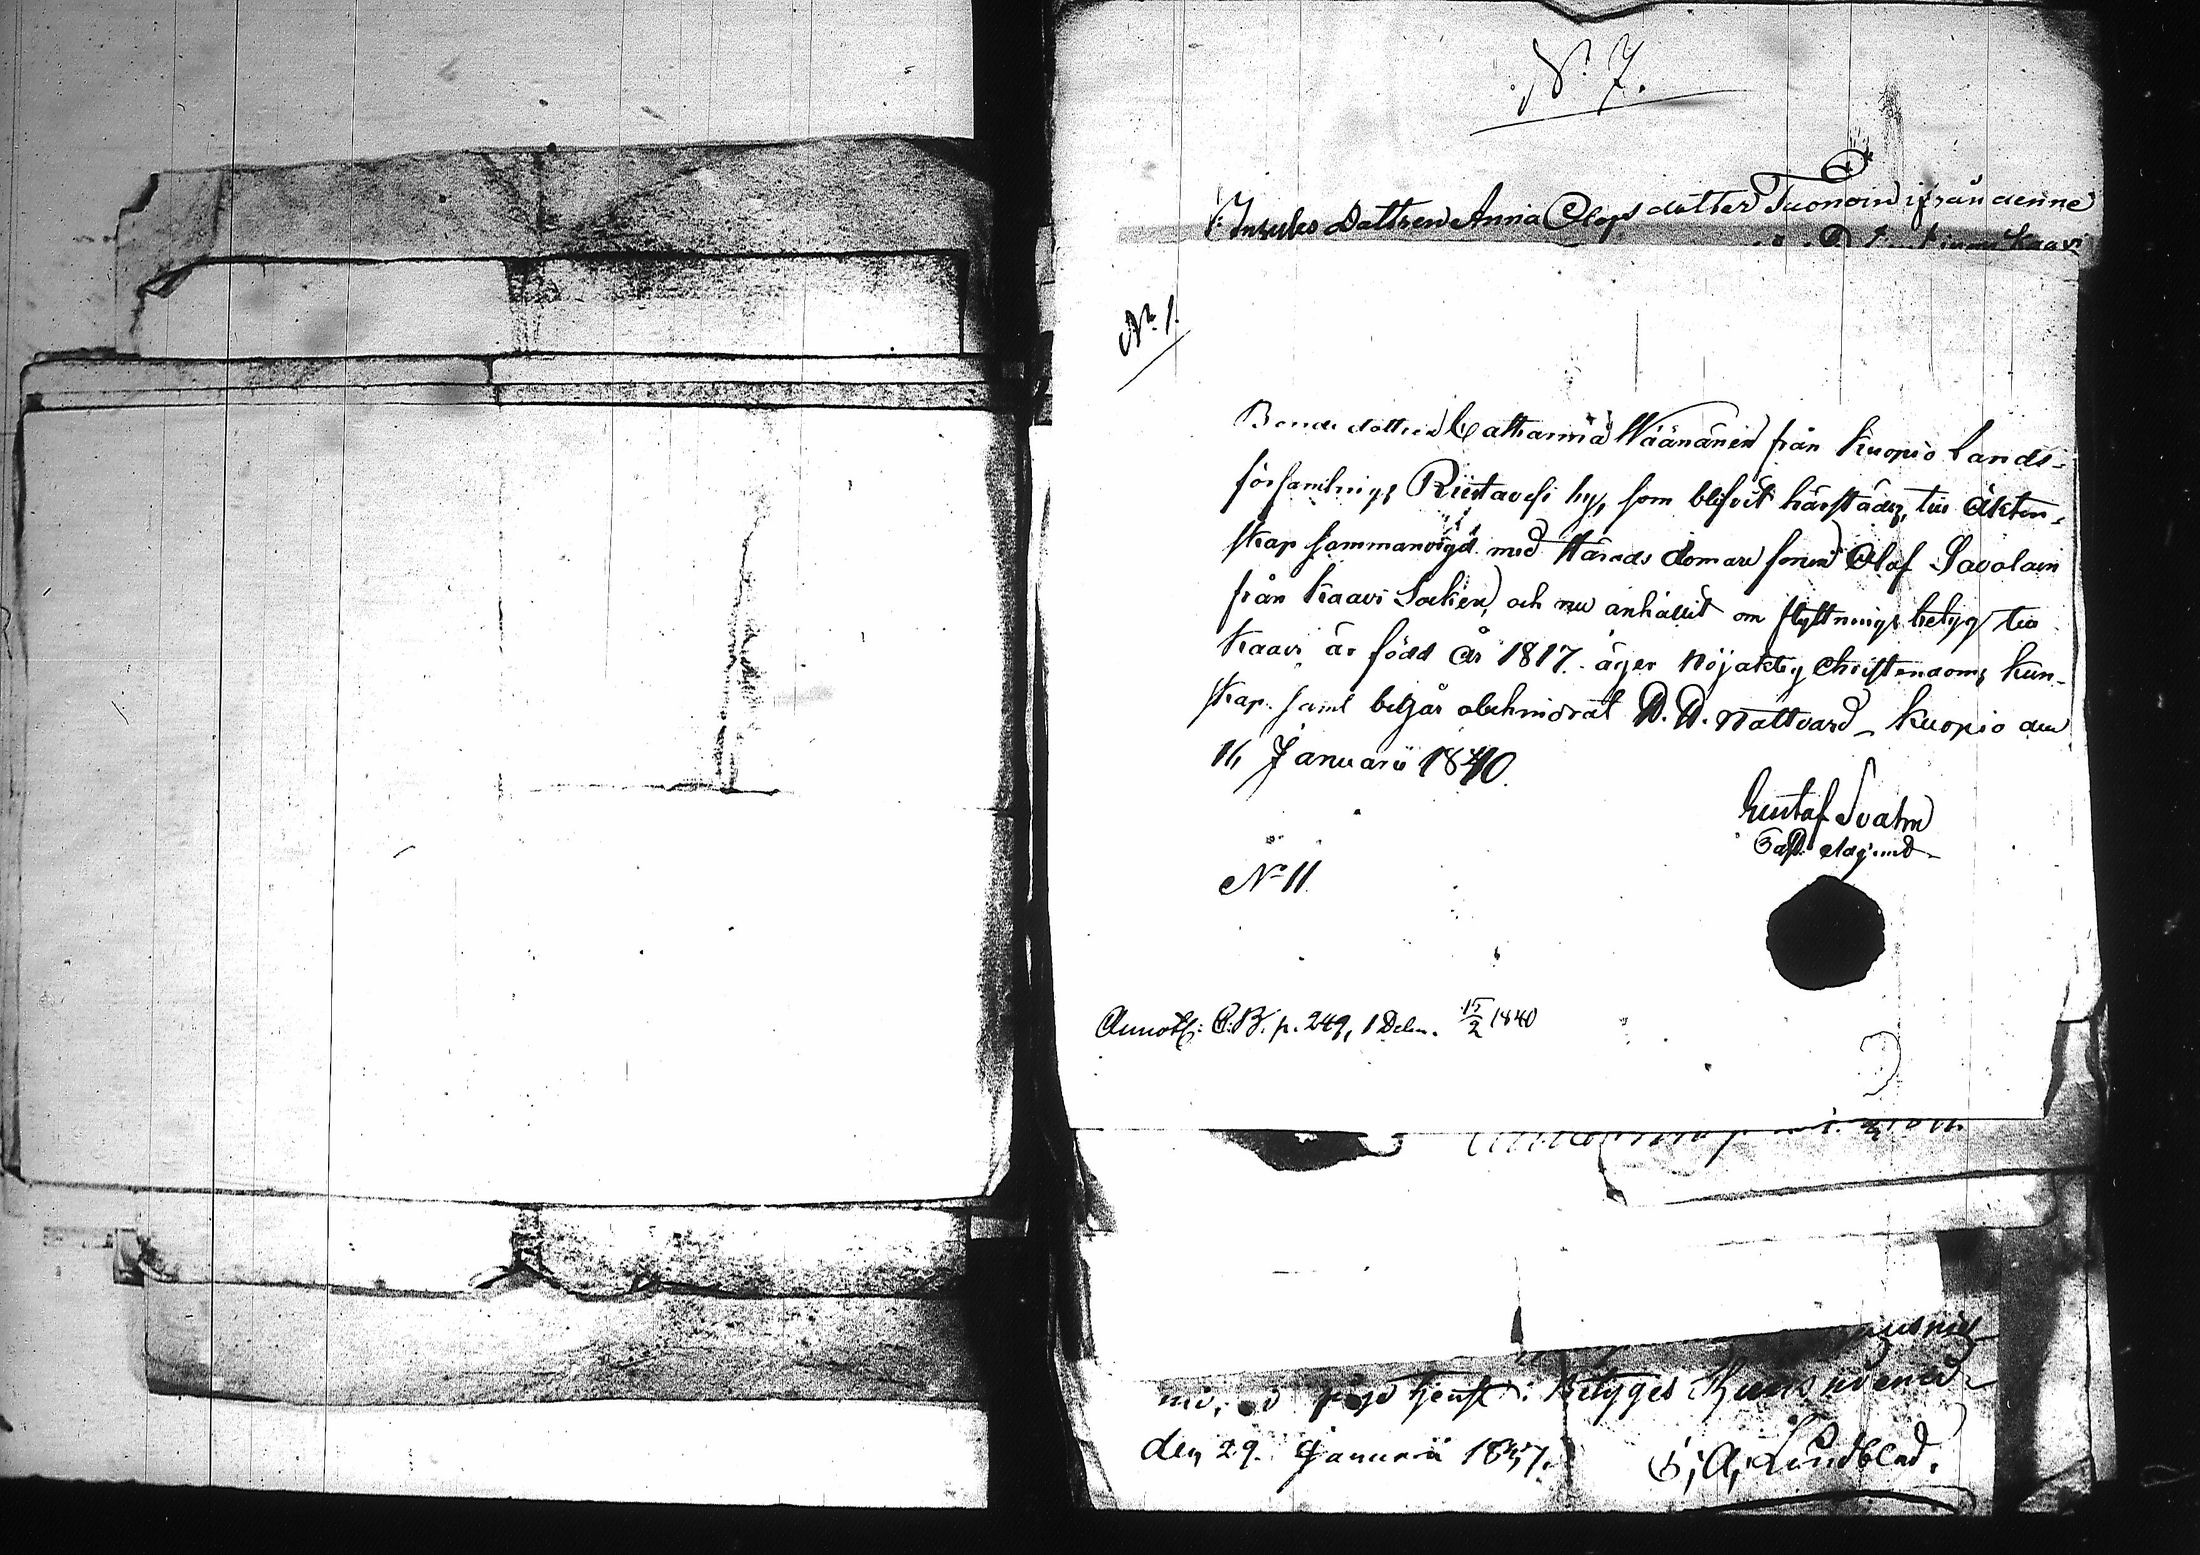 N:o 7.
Inhyses Dottren Anna Olofs dotter Tuonoin ifrån denne
Kaavi
N:o 1.
Bonde dottren Catharina Wäänänen från Kuopio Lands-
församlings Riistavesi by, som blifvit härstädes till äkten-
skap sammanvigd med Härads domare sonen Olof Savolain
från Kaavi Socken, och nu anhållit om flyttnings betyg till
Kaavi är född år 1817. äger nöjaktig Christendoms kun-
skap samt begår obehindrat D. D. Nattvard_ Kuopio den
16 Januarii 1840.
Gustaf Svahn
Past. Adjunct.
N:o 11
Annot. C.B. p. 249, 1 Delen. 15/2 1840
betyges
den 29. Januarii 1837.
A. Lundblad.